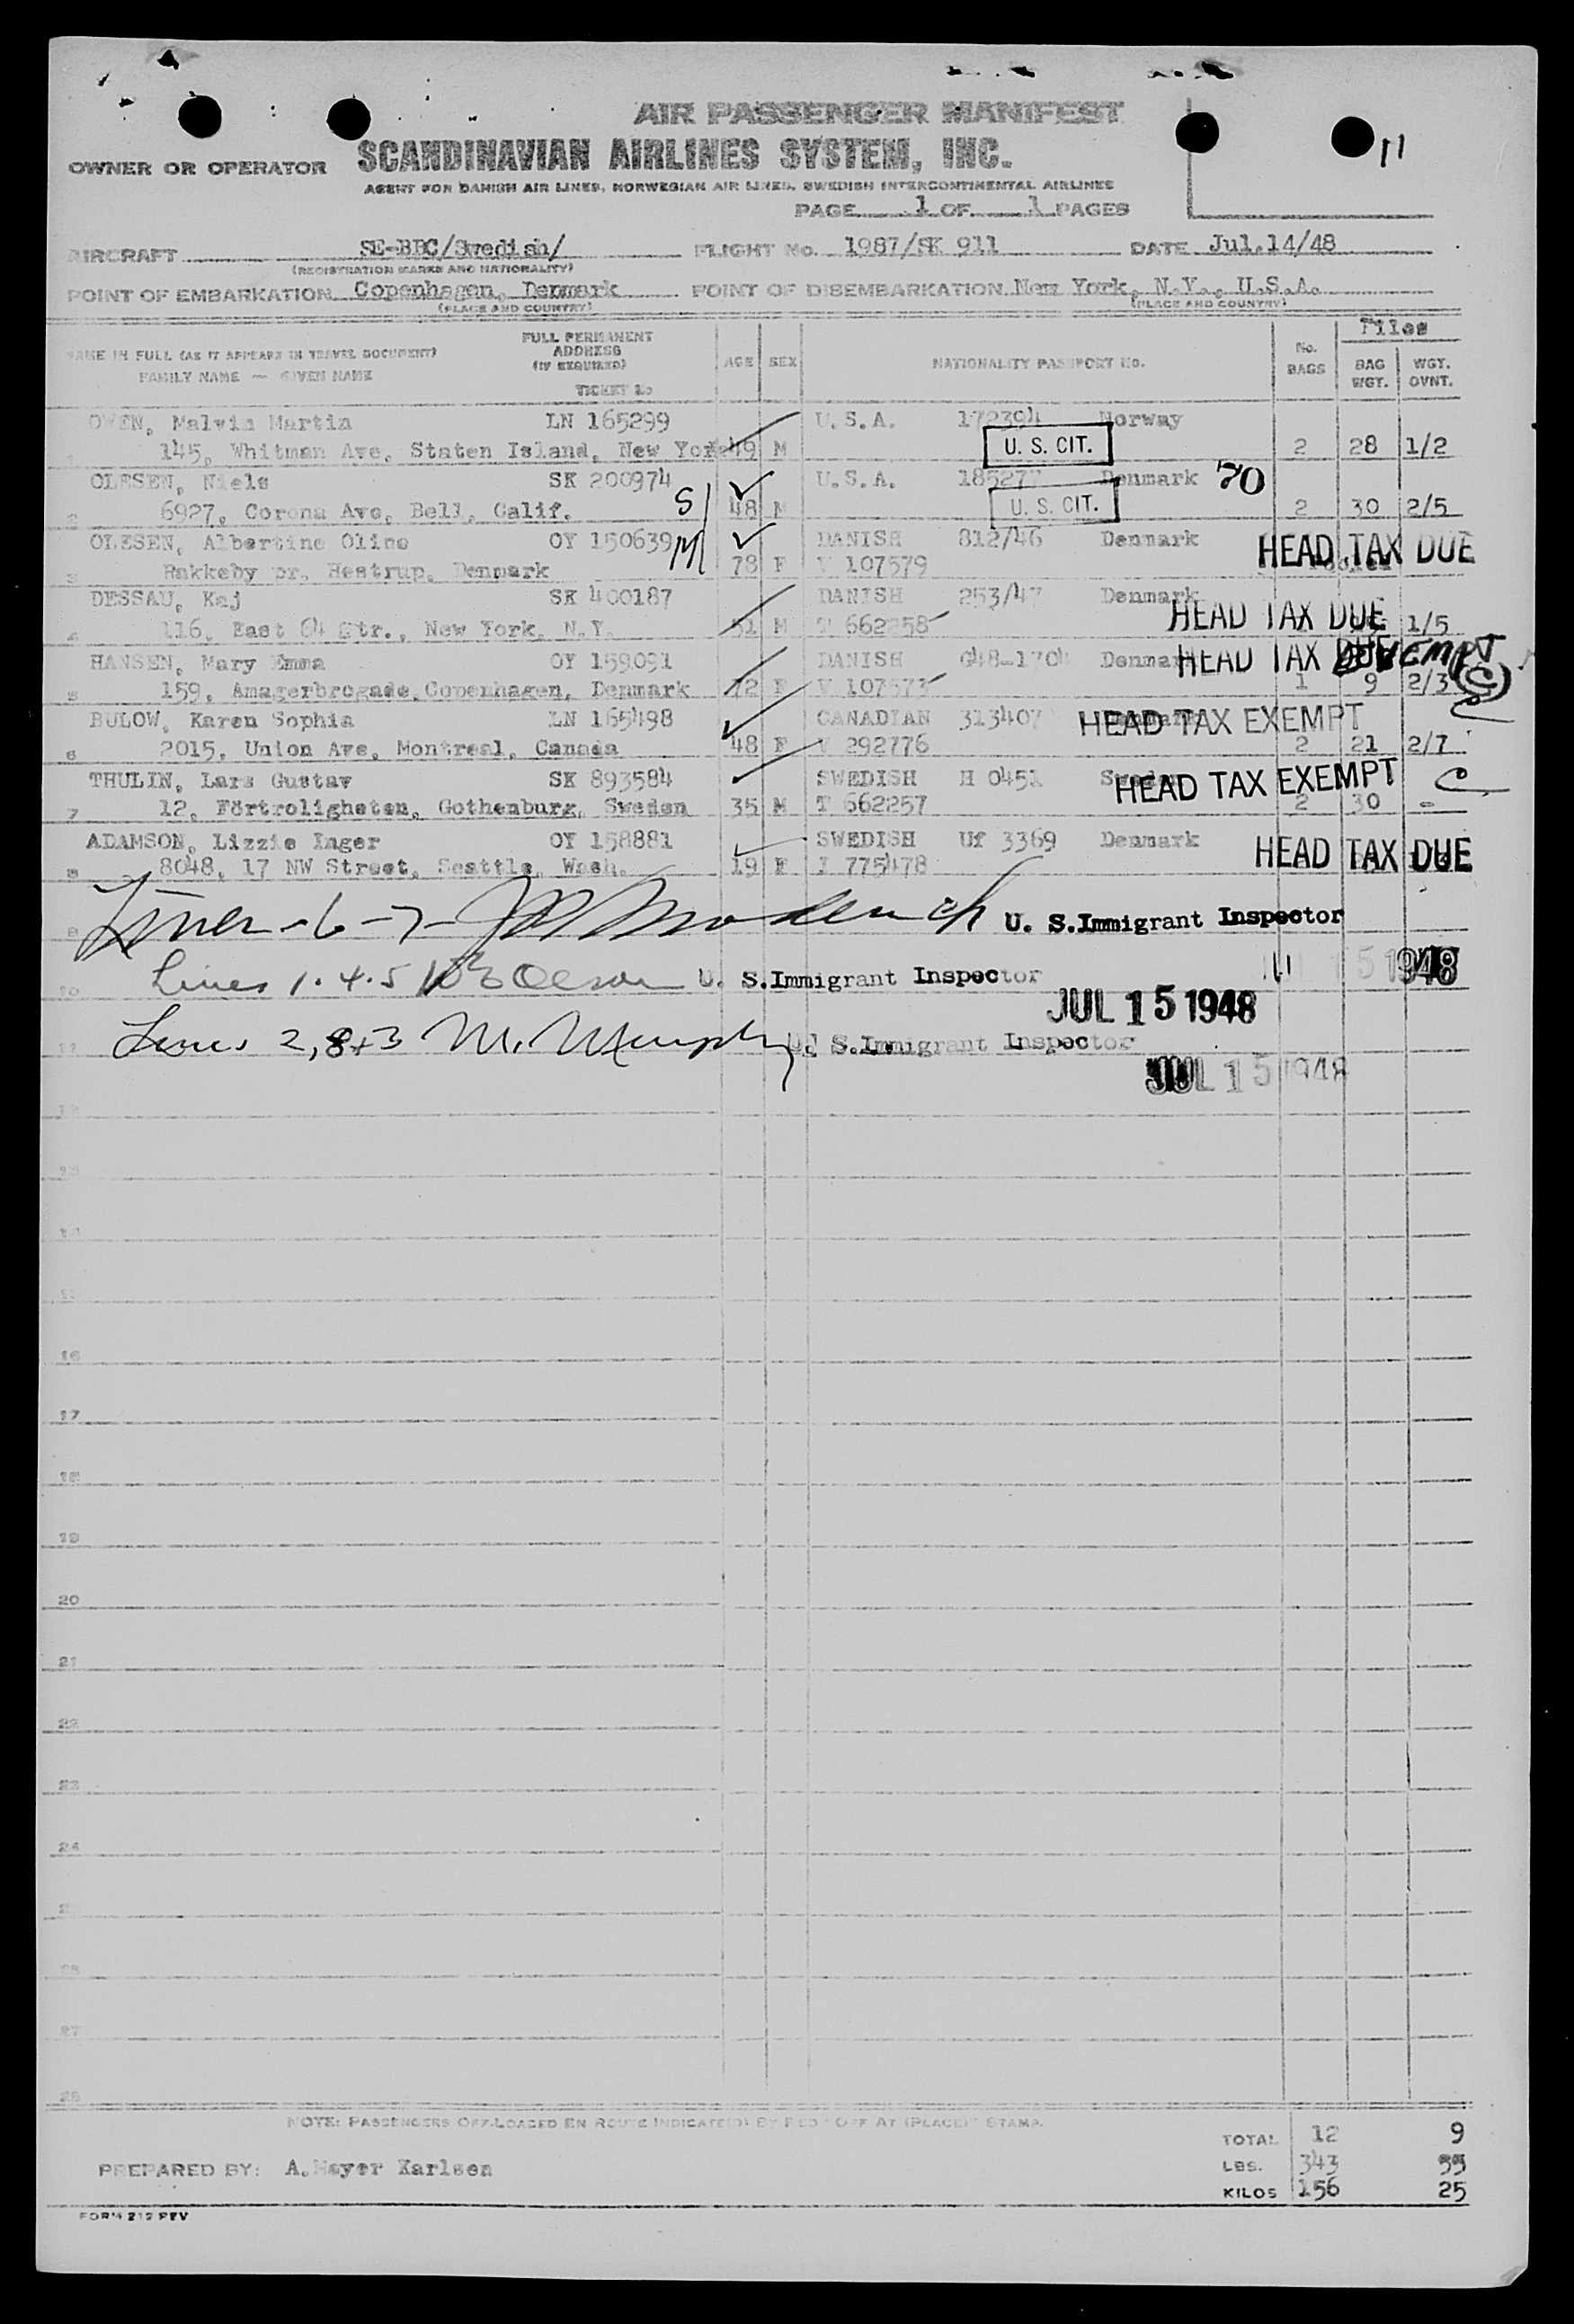 11
AIR PASSENGER MANIFEST
OWNER OR OPERATOR SCANDINAVIAN AIRLINES SYSTEM, INC.
AGENT FOR DANISH AIR LINES, NORWEGIAN AIR LINES, SWEDISH INTERCONTINENTAL AIRLINES
PAGE 1 OF 1 PAGES
AIRCRAFT SE-BBC/Swedish/ FLIGHT No. 1987/SK 911 DATE Jul.14/48
(REGISTRATION MARKS AND NATIONALITY)
POINT OF EMBARKATION Copenhagen, Denmark POINT OF DISEMBARKATION New York, N.Y., U.S.A.
(PLACE AND COUNTRY) (PLACE AND COUNTRY)
NAME IN FULL (AS IT APPEARS IN TRAVEL DOCUMENT) FAMILY NAME — GIVEN NAME
FULL PERMANENT ADDRESS (IF REQUIRED) TICKET No
AGE SEX NATIONALITY PASSPORT No. No. BAGS BAG WGT. WGT. OVNT.
OWEN, Malvin Martin LN 165299 U.S.A. 172394 Norway
1 145, Whitman Ave, Staten Island, New York 49 M U. S. CIT. 2 28 1/2
OLESEN, Niels SK 200974 U.S.A. 185277 Denmark 70
2 6927, Corona Ave, Bell, Calif. 48 M U. S. CIT. 2 30 2/5
OLESEN, Albertine Oline OY 150639 DANISH 812/46 Denmark HEAD TAX DUE
3 Rakkeby pr. Hestrup, Denmark 78 F V 107579
DESSAU, Kaj SK 400187 DANISH 253/47 Denmark HEAD TAX DUE
4 116, East 64 Str., New York, N.Y. 51 M T 662258 1/5
HANSEN, Mary Emma OY 159091 DANISH 648-1704 Denmark HEAD TAX DUE exempt
5 159, Amagerbrogade, Copenhagen, Denmark 72 F V 107573 1 9 2/3 C
BULOW, Karen Sophia LN 165498 CANADIAN 313407 HEAD TAX EXEMPT C
6 2015, Union Ave, Montreal, Canada 48 F V 292776 2 21 2/7
THULIN, Lars Gustav SK 893584 SWEDISH H 0451 Sweden HEAD TAX EXEMPT C
7 12, Förtroligheten, Gothenburg, Sweden 35 M T 662257 2 30 -
ADAMSON, Lizzie Inger OY 158881 SWEDISH Uf 3369 Denmark HEAD TAX DUE
8 8048, 17 NW Street, Seattle, Wash. 19 F I 775478
9 Lines - 6 - 7 U. S. Immigrant Inspector
10 Lines 1. 4. 5 Olson U. S. Immigrant Inspector 5 1948
JUL 15 1948
11 Lines 2, 8+3 M. Murphy U. S. Immigrant Inspector
JUL 15 1948
12
13
14
15
16
17
18
19
20
21
22
23
24
25
26
27
28
NOTE: PASSENGERS OFF-LOADED EN ROUTE INDICATE(D) BY RED "OFF AT (PLACE)" STAMP.
TOTAL 12 9
PREPARED BY: A. Mayer Karlsen LBS. 343 55
KILOS 156 25
FORM 212 REV